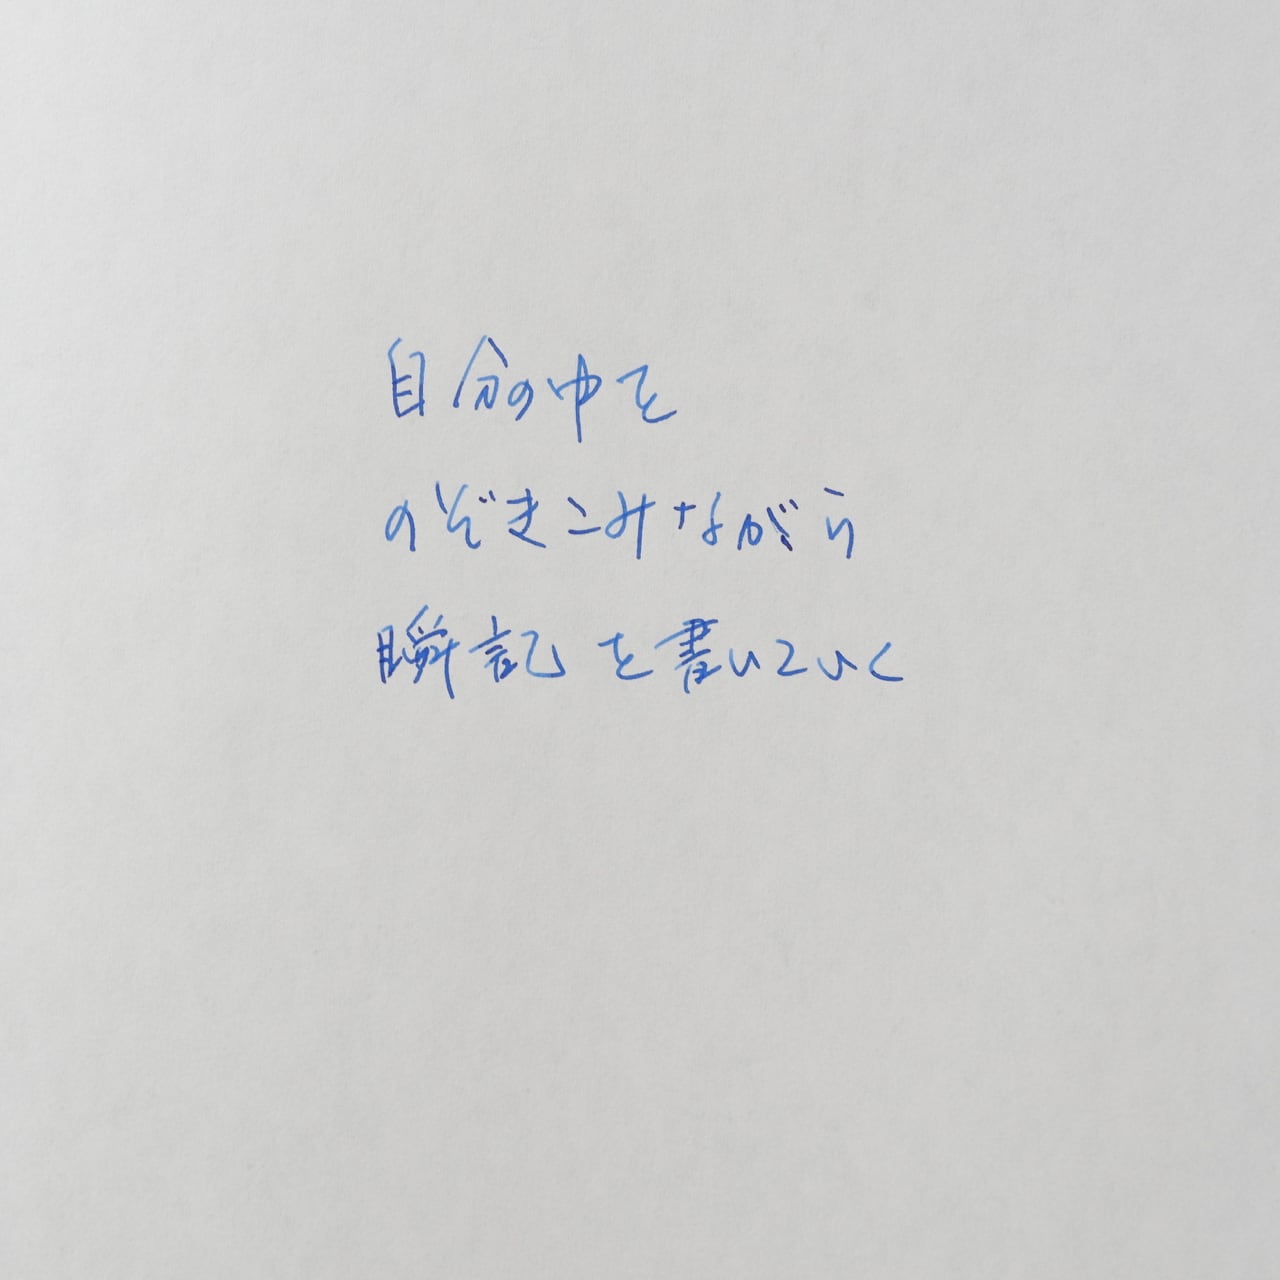 自分の中を
のぞきこみながら
瞬記を書いていく